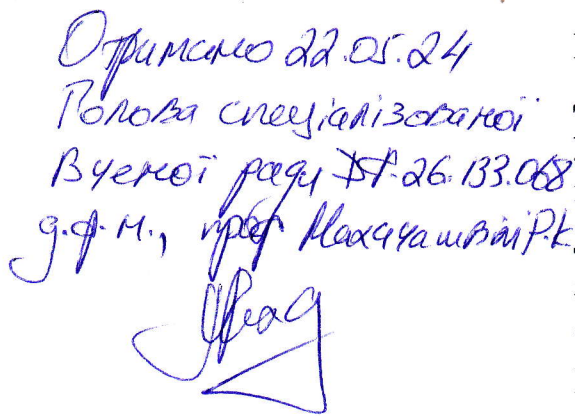 Отримано 22.05.24
Голова спеціалізованої
Вченої ради ДФ 26.133.068
д.ф.н., проф Махачашвілі Р.К.